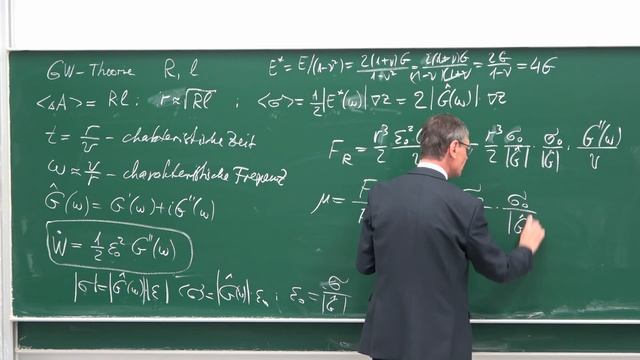 GW-Theorie R, l
E* = E/(1-ν²) = 2(1+ν)G/(1-ν²) = 2(1+ν)G/((1-ν)(1+ν)) = 2G/(1-ν) = 4G
<ΔA> = Rl ; r ≈ √Rl ; <σ> = ½|E*(ω)|∇z = 2|Ĝ(ω)|∇z
t = r/v - charakteristische Zeit
ω ≈ v/r - charakteristische Frequenz
Ĝ(ω) = G'(ω) + iG''(ω)
Ẇ = ½ ε₀² G''(ω)
|σ| = |Ĝ(ω)||ε| σ₀ = |Ĝ(ω)| ε₀ ; ε₀ = σ/|Ĝ|
F_R = r³/2 ε₀² = r³/2 σ₀/|Ĝ| · σ₀/|Ĝ| · G''(ω)/v
μ = F · σ₀/|G